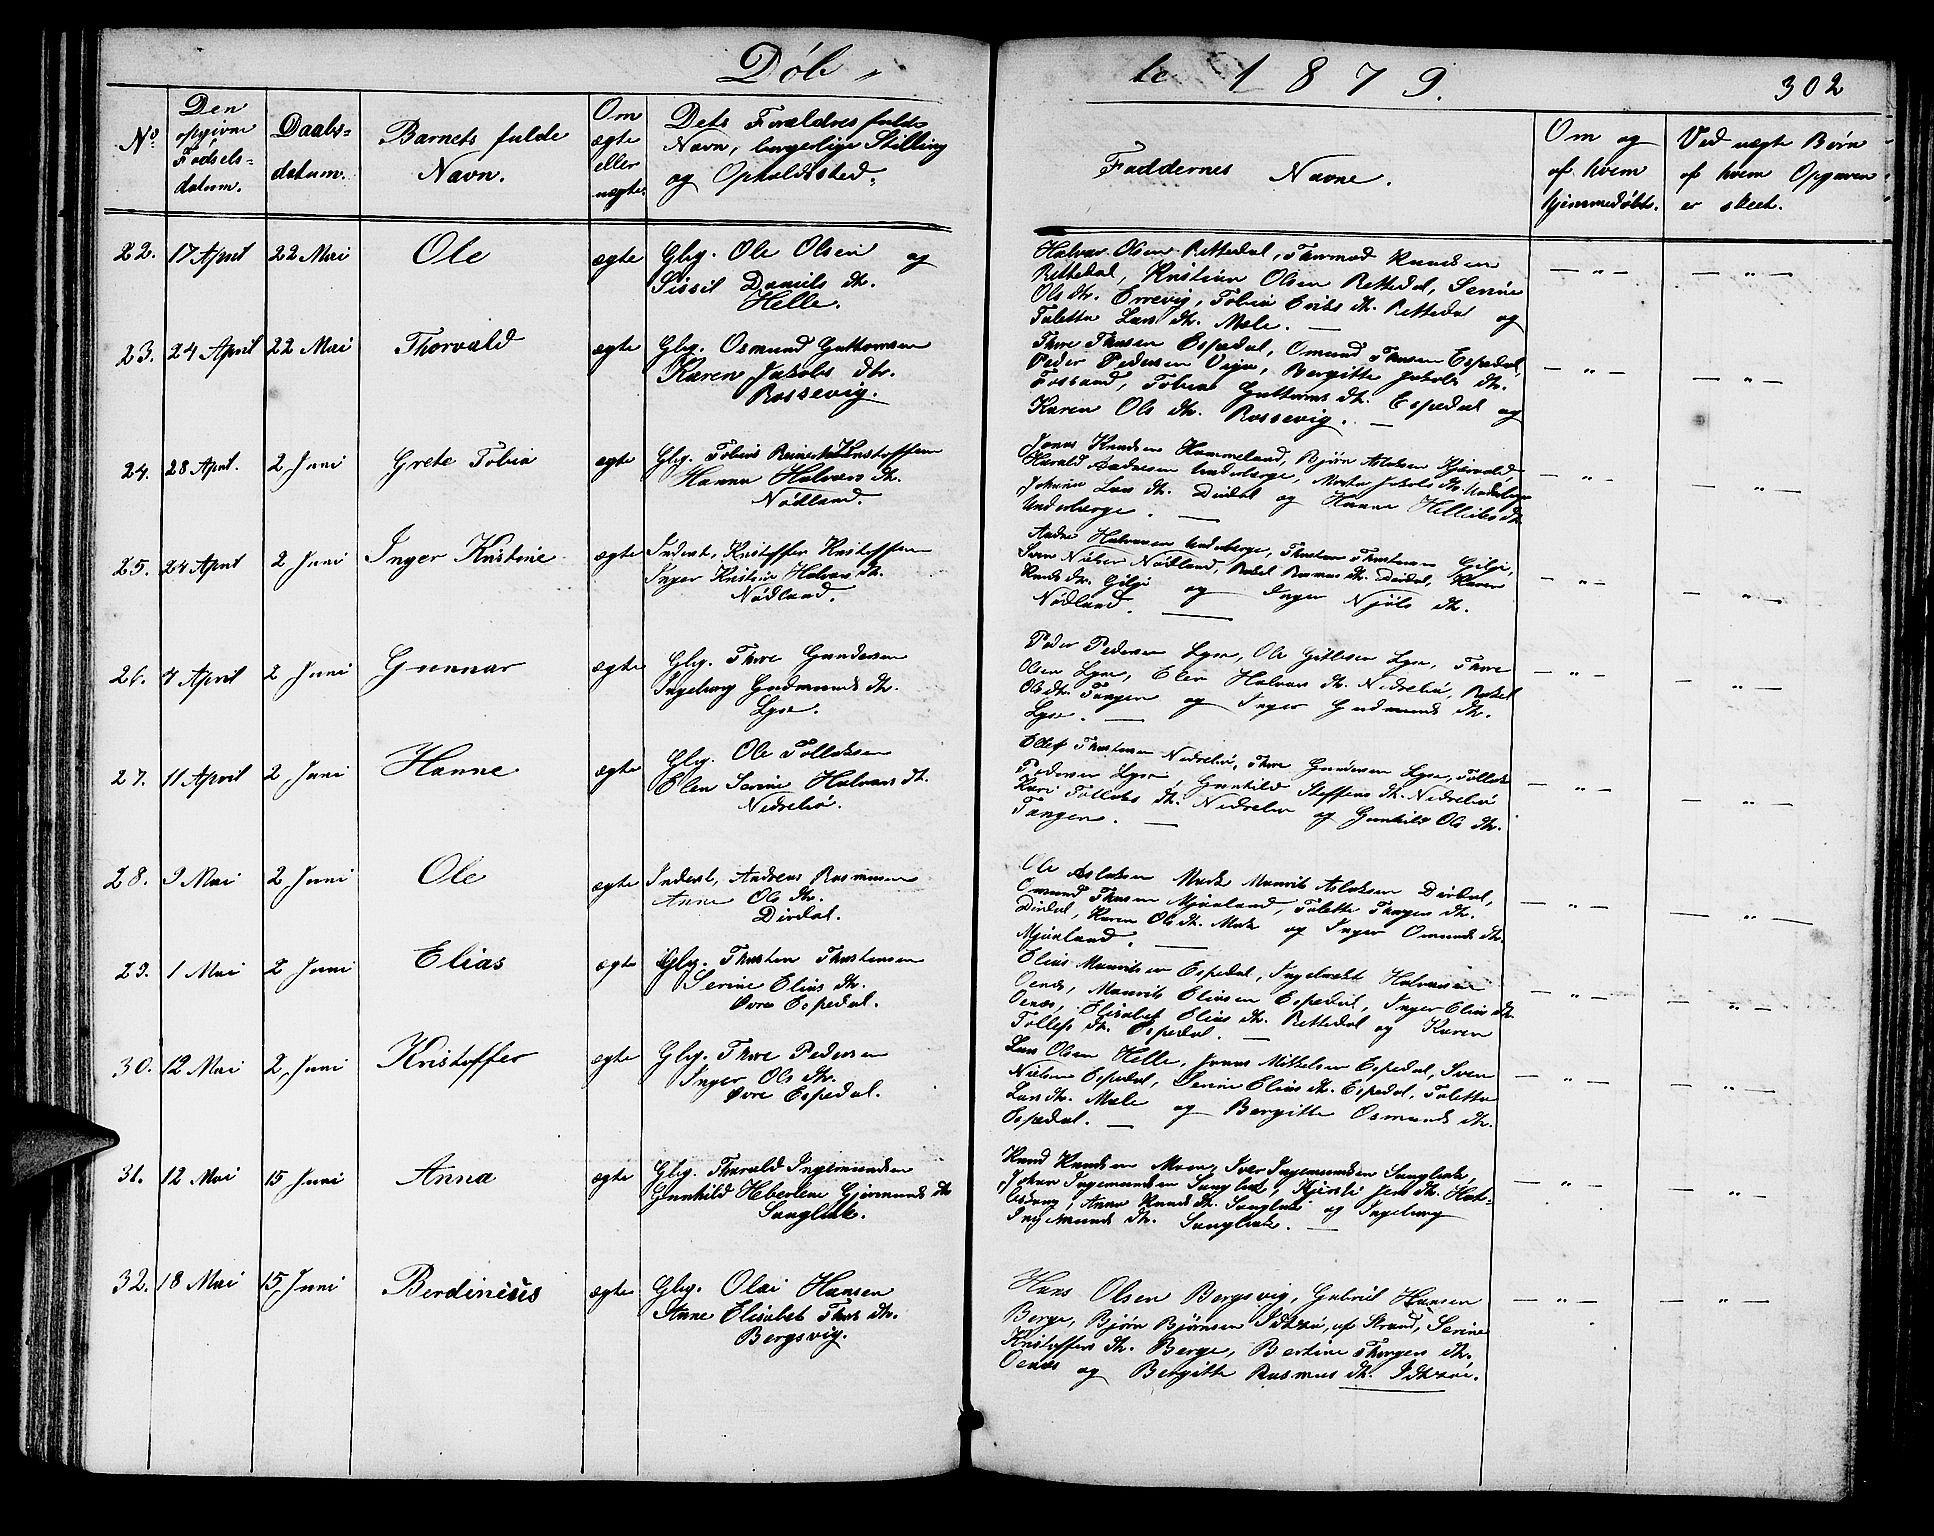 Døb-
te 1879.
302
No.
Den opgivne Fødsels-datum.
Daabs-datum.
Barnets fulde Navn.
Om ægte eller uægte
Dets Forældres fulde Navn, borgerlige Stilling og Opholdssted.
Faddernes Navne.
Om og af hvem hjemmedøbt.
Ved uægte Børn af hvem Opgaven er skeet.
22. 17 April 22 Mai Ole ægte Gbg. Ole Olsen og
Sissil Daniels dtr.
Helle.
Halvor Olsen Rettedal, Thormod Knudsen
Rettedal, Kristian Olsen Rettedal, Serine
Ols dtr. Errevig, Tobia Eriks dtr. Rettedal og
Talette Lars dtr. Mæle. —
— " — — " —
23. 24 April 22 Mai Thorvald ægte Gbg. Osmund Guttormsen
Karen Jakobs dtr.
Rossevig.
Thore Thorsen Espedal, Omund Thorsen Espedal,
Peder Pedersen Veja, Bergitte Jakobs dtr.
Fossand, Tobia Guttorms dtr. Espedal og
Karen Ols dtr. Rossevig. —
— " — — " —
24. 28 April. 2 Juni Grete Tobia ægte Gbg. Tobias Kristoffersen
Hanna Halvors dtr.
Nødland.
Jonas Knudsen Hommeland, Bjørn Aslaksen Kjærvold,
Harald Andresen Underberge, Marta Jakobs dtr. Underberge
Johanna Lars dtr. Dirdal og Hanne Helliks dtr.
Underberge. —
— " — — " —
25. 24 April 2 Juni Inger Kristine ægte Inderst, Kristoffer Kristoffersen
Inger Kristine Halvors dtr.
Nødland.
Andre Halvorsen Underberge, Thorsten Thorstensen Gilje,
Sven Nødland, Rakel Rasmus dtr. Dirdal, Karen
Knuds dtr. Gilje og Inger Njæls dtr.
Nødland. —
— " — — " —
26. 7 April 2 Juni Gunnar ægte Gbg. Thore Gundersen
Ingeborg Gudmunds dtr.
Lyse.
Peder Pedersen Lyse, Ole Gitlesen Lyse, Thore
Olsen Lyse, Elen Halvors dtr. Nedrebø, Rakel
Ols dtr. Tangen og Inger Gudmunds dtr.
Lyse. —
— " — — " —
27. 11 April 2 Juni Hanne ægte Gbg. Ole Tollaksen
Elen Serine Halvors dtr.
Nedrebø.
Ellef Thorstensen Nedrebø, Thore Gundersen Lyse, Tollak
Pedersen Lyse, Gunhild Steffens dtr. Nedrebø
Kari Tollaks dtr. Nedrebø og Gunhild Ols dtr.
Tangen. —
— " — — " —
28. 9 Mai 2 Juni Ole ægte Inderst, Andreas Rasmusen
Anne Ols dtr.
Dirdal.
Ole Aslaksen Maurits Aslaksen Dirdal,
Omund Thorsen Mjønland, Talette Thorgers dtr.
Dirdal, Karen Ols dtr. og Inger Omunds dtr.
Mjønland. —
— " — — " —
29. 1 Mai 2 Juni Elias ægte Gbg. Thorsten Thorstensen
Serine Elias dtr.
Øvre Espedal.
Elias Mauritsen Espedal, Ingebret Halvorsen
Oenæs, Maurits Eliasen Espedal, Inger Elias dtr.
Oenæs, Elisabet Elias dtr. Rettedal og Karen
Tollefs dtr. Espedal. —
— " — — " —
30. 12 Mai 2 Juni Kristoffer ægte Gbg. Thore Pedersen
Inger Ols dtr.
Øvre Espedal.
Lars Olsen Helle, Jonas Mikkelsen Espedal, Sven
Nielsen Espedal, Serine Elias dtr. Espedal, Talette
Lars dtr. Mæle og Bergitte Osmunds dtr.
Espedal. —
— " — — " —
31. 12 Mai 15 Juni Anna ægte Gbg. Thorvald Ingemundsen
Gunhild Eberlene Gjermunds dtr
Songlesk.
Knud Knudsen Moen, Iver Ingemundsen Songlesk,
Johan Ingemundsen Songlesk, Kjersti Jens dtr.
Anna Knuds dtr. Songlesk og Ingeborg
Ingemunds dtr. Songlesk. —
— " — — " —
32. 18 Mai 15 Juni Berdinius ægte Gbg. Olai Hansen
Anne Elisabet Thors dtr.
Bergsvig.
Hans Olsen Bergsvig, Gabriel Hansen
Berge, Bjørn Bjørnsen Idsøe, af Strand, Serine
Kristoffers dtr. Berge, Bertine Thorgers dtr.
Oenæs og Bergitte Rasmus dtr. Idsøe.
— " — — " —